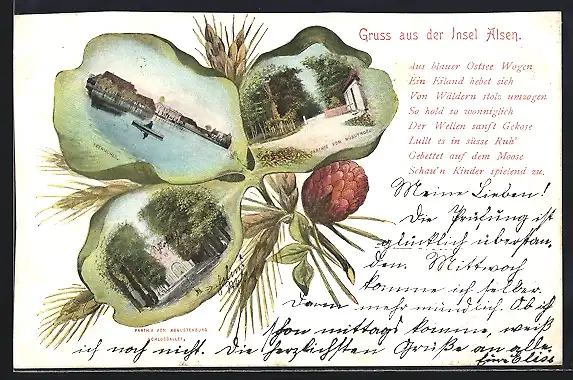 Gruss aus der Insel Alsen.
Aus blauer Ostsee Wogen
Ein Eiland hebet sich
Von Wäldern stolz umzogen
So hold so wonniglich
Der Wellen sanft Gekose
Lullt es in süsse Ruh'
Gebettet auf dem Moose
Schau'n Kinder spielend zu.
Meine Lieben!
Die Prüfung ist
glücklich überstan,
den. Mittwoch
komme ich selber.
Dann mehr mündlich. Ob ich
schon mittags komme, weiß
ich noch nicht. Die herzlichsten Grüße an alle.
Eure Eliss
PARTHIE VON
PARTHIE VON AUGUSTENBURG
SCHLOSSALLEE.